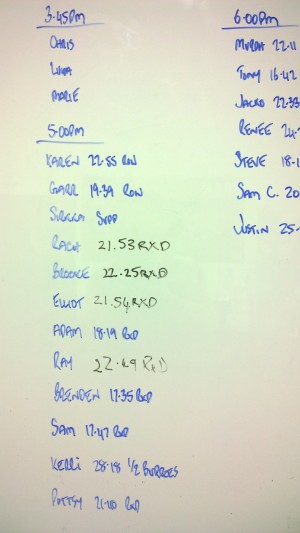 3.45PM
CHRIS
LUKA
MARIE
5.00PM
KAREN 22.55 ROW
GARR 19.39 ROW
SUPP
RACH 21.53 RXD
BROOKE 22.25 RXD
ELLIOT 21.54 RXD
ADAM 18.19 RXD
RAY 22.49 RXD
BRENDEN 17.35 RXD
SAM 17.47 RXD
KERRI 28.18 1/2 BURPEES
POTTSY 21.10 RXD
6.00PM
22.11
TONY 16.42
JACKO 22.33
RENEE 24.
STEVE 18.1
SAM C. 20
JUSTIN 25.